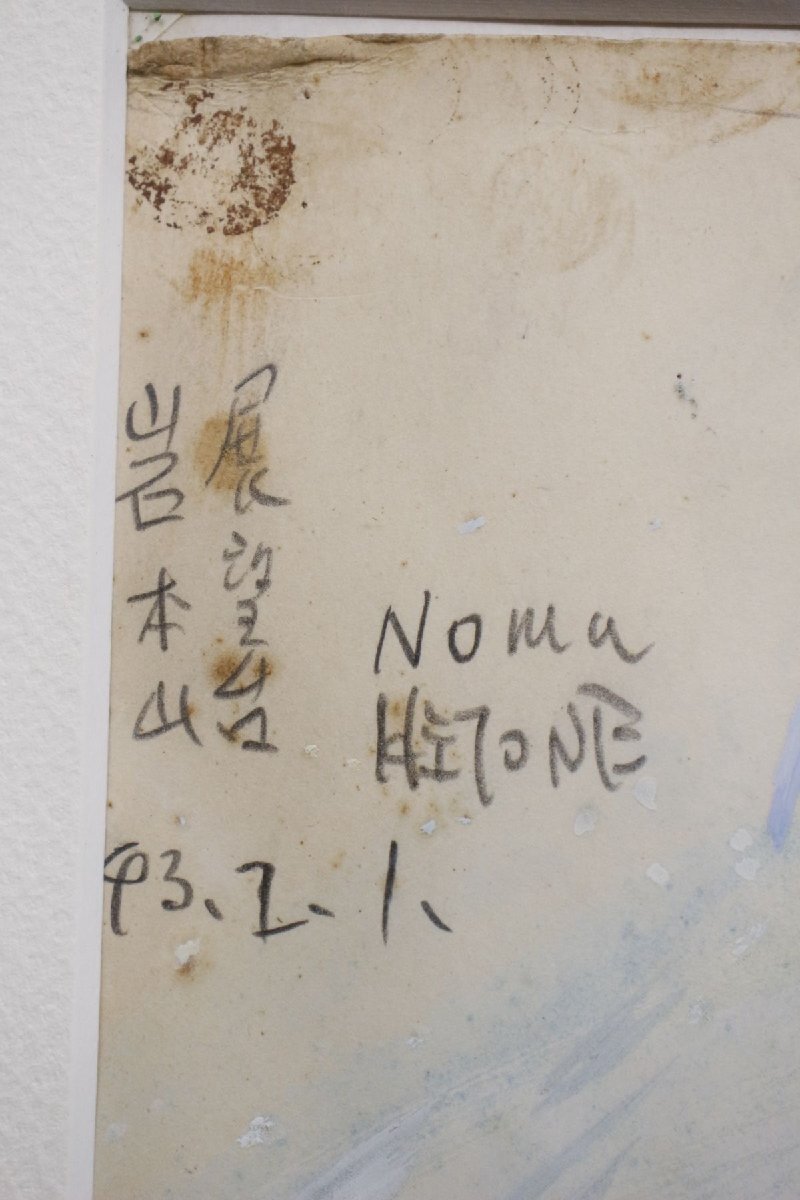 岩本山
展望台
Noma
HITONE
43.2.1.